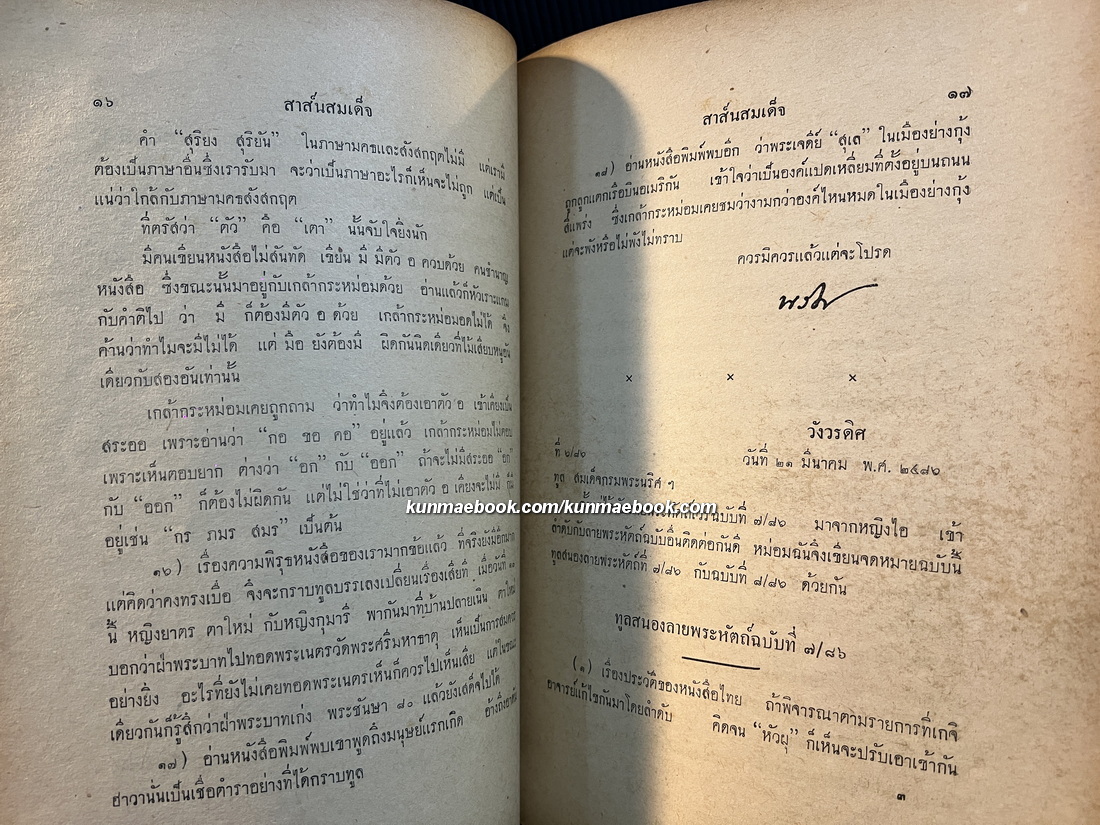 ๑๖
สาส์นสมเด็จ
คำ “สุริยง สุริยัน” ในภาษามคธและสังสกฤตไม่มี แต่เรามี
ต้องเป็นภาษาอื่นซึ่งเรารับมา จะว่าเป็นภาษาอะไรก็เห็นจะไม่ถูก แต่เป็น
แน่ว่าใกล้กับภาษามคธสังสกฤต
ที่ตรัสว่า “ตัว” คือ “เตา” นั้นจับใจยิ่งนัก
มีคนเขียนหนังสือไม่สันทัด เขียน มี มีตัว อ ควบด้วย คนชำนาญ
หนังสือ ซึ่งขณะนั้นมาอยู่กับเกล้ากระหม่อมด้วย อ่านแล้วก็หัวเราะแกม
กับคำติไป ว่า มี ก็ต้องมีตัว อ ด้วย เกล้ากระหม่อมอดไม่ได้ จึง
ค้านว่าทำไมจะมีไม่ได้ แต่ มือ ยังต้องมี ผิดกันนิดเดียวที่ไม้เสียบหนูอัน
เดียวกับสองอันเท่านั้น
เกล้ากระหม่อมเคยถูกถาม ว่าทำไมจึงต้องเอาตัว อ เข้าเคียงเป็น
สระออ เพราะอ่านว่า “กอ ขอ คอ” อยู่แล้ว เกล้ากระหม่อมไม่ตอบ
เพราะเห็นตอบยาก ต่างว่า “อก” กับ “ออก” ถ้าจะไม่มีสระออ “อก”
กับ “ออก” ก็ต้องไม่ผิดกัน แต่ไม่ใช่ว่าที่ไม่เอาตัว อ เคียงจะไม่มี ก็มี
อยู่เช่น “กร ภมร สมร” เป็นต้น
๑๖) เรื่องความพิรุธหนังสือของเรามากข้อแล้ว ที่จริงยังมีอีกมาก
แต่คิดว่าคงทรงเบื่อ จึงจะกราบทูลบรรเลงเปลี่ยนเรื่องเสียที เมื่อวันที่
นี้ หญิงยาตร ตาใหม่ กับหญิงกุมารี พากันมาที่บ้านปลายเนิน ตาใหม่
บอกว่าฝ่าพระบาทไปทอดพระเนตรวัดพระศรีมหาธาตุ เห็นเป็นการสมควร
อย่างยิ่ง อะไรที่ยังไม่เคยทอดพระเนตรเห็นก็ควรไปเห็นเสีย แต่ในขณะ
เดียวกันก็รู้สึกว่าฝ่าพระบาทเก่ง พระชันษา ๘๐ แล้วยังเสด็จไปได้
๑๗) อ่านหนังสือพิมพ์พบเขาพูดถึงมนุษย์แรกเกิด อ้างถึงอาดัม
ฮาวานั่นเป็นเชื่อคำราอย่างที่ได้กราบทูล
๑๗
สาส์นสมเด็จ
๑๘) อ่านหนังสือพิมพ์พบอีก ว่าพระเจดีย์ “สุเล” ในเมืองย่างกุ้ง
ถูกลูกแตกเรือบินอเมริกัน เข้าใจว่าเป็นองค์แปดเหลี่ยมที่ตั้งอยู่บนถนน
สี่แพร่ง ซึ่งเกล้ากระหม่อมเคยชมว่างามกว่าองค์ไหนหมดในเมืองย่างกุ้ง
แต่จะพังหรือไม่พังไม่ทราบ
ควรมิควรแล้วแต่จะโปรด
× × ×
วังวรดิศ
ที่ ๖/๘๖
วันที่ ๒๑ มีนาคม พ.ศ. ๒๔๘๖
ทูล สมเด็จกรมพระนริศ ฯ
ฉบับที่ ๗/๘๖ มาจากหญิงไอ เข้า
kunmaebook.com/kunmaebook.com
ลำดับกับลายพระหัตถ์ฉบับอื่นติดต่อกันดี หม่อมฉันจึงเขียนจดหมายฉบับนี้
ทูลสนองลายพระหัตถ์ที่ ๗/๘๖ กับฉบับที่ ๘/๘๖ ด้วยกัน
ทูลสนองลายพระหัตถ์ฉบับที่ ๗/๘๖
(๑) เรื่องประวัติของหนังสือไทย ถ้าพิจารณาตามรายการที่เกจิ
อาจารย์แก้ไขกันมาโดยลำดับ คิดจน “หัวผุ” ก็เห็นจะปรับเอาเข้ากัน
๓